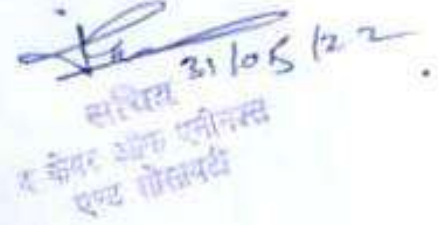 31/05/22
सचिव
द केयर ऑफ एनीमल्स
एण्ड सोसायटी